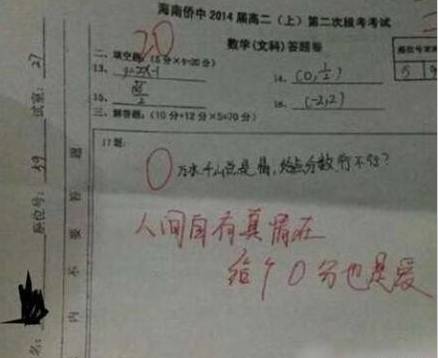 海南侨中2014届高二（上）第二次段考考试
数学(文科)答题卷
20
二、填空题：(5分×4=20分)
13、 y=2x-1
14、 (0, 1/2)
15、
16、 (-2,2)
三、解答题：(10分+12分×5=70分)
17题：
0 万水千山总是情,给点分数行不行?
人间自有真情在
给个0分也是爱
试室：27
座位号：39
题
答
要
不
内